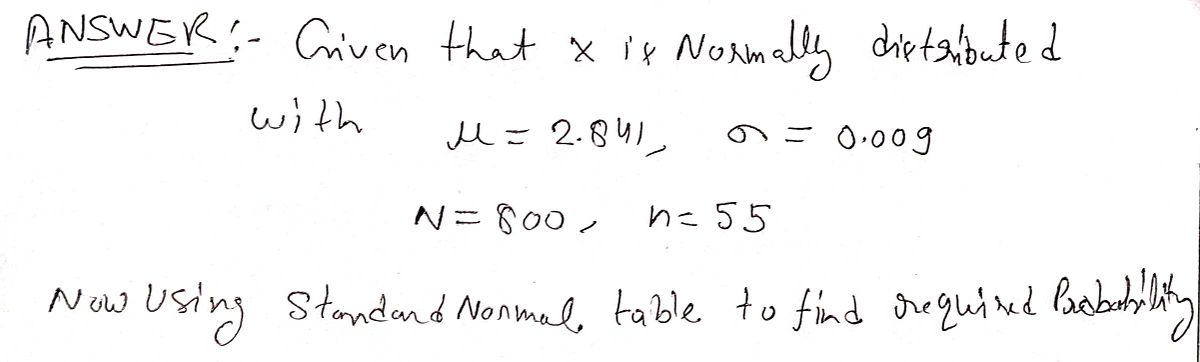 ANSWER:- Given that x is Normally distributed
with μ = 2.841, σ = 0.009
N = 800, n = 55
Now Using Standard Normal table to find required Probability